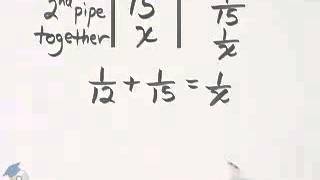 2nd pipe | 15 | 1/15
together | x | 1/x
1/12 + 1/15 = 1/x